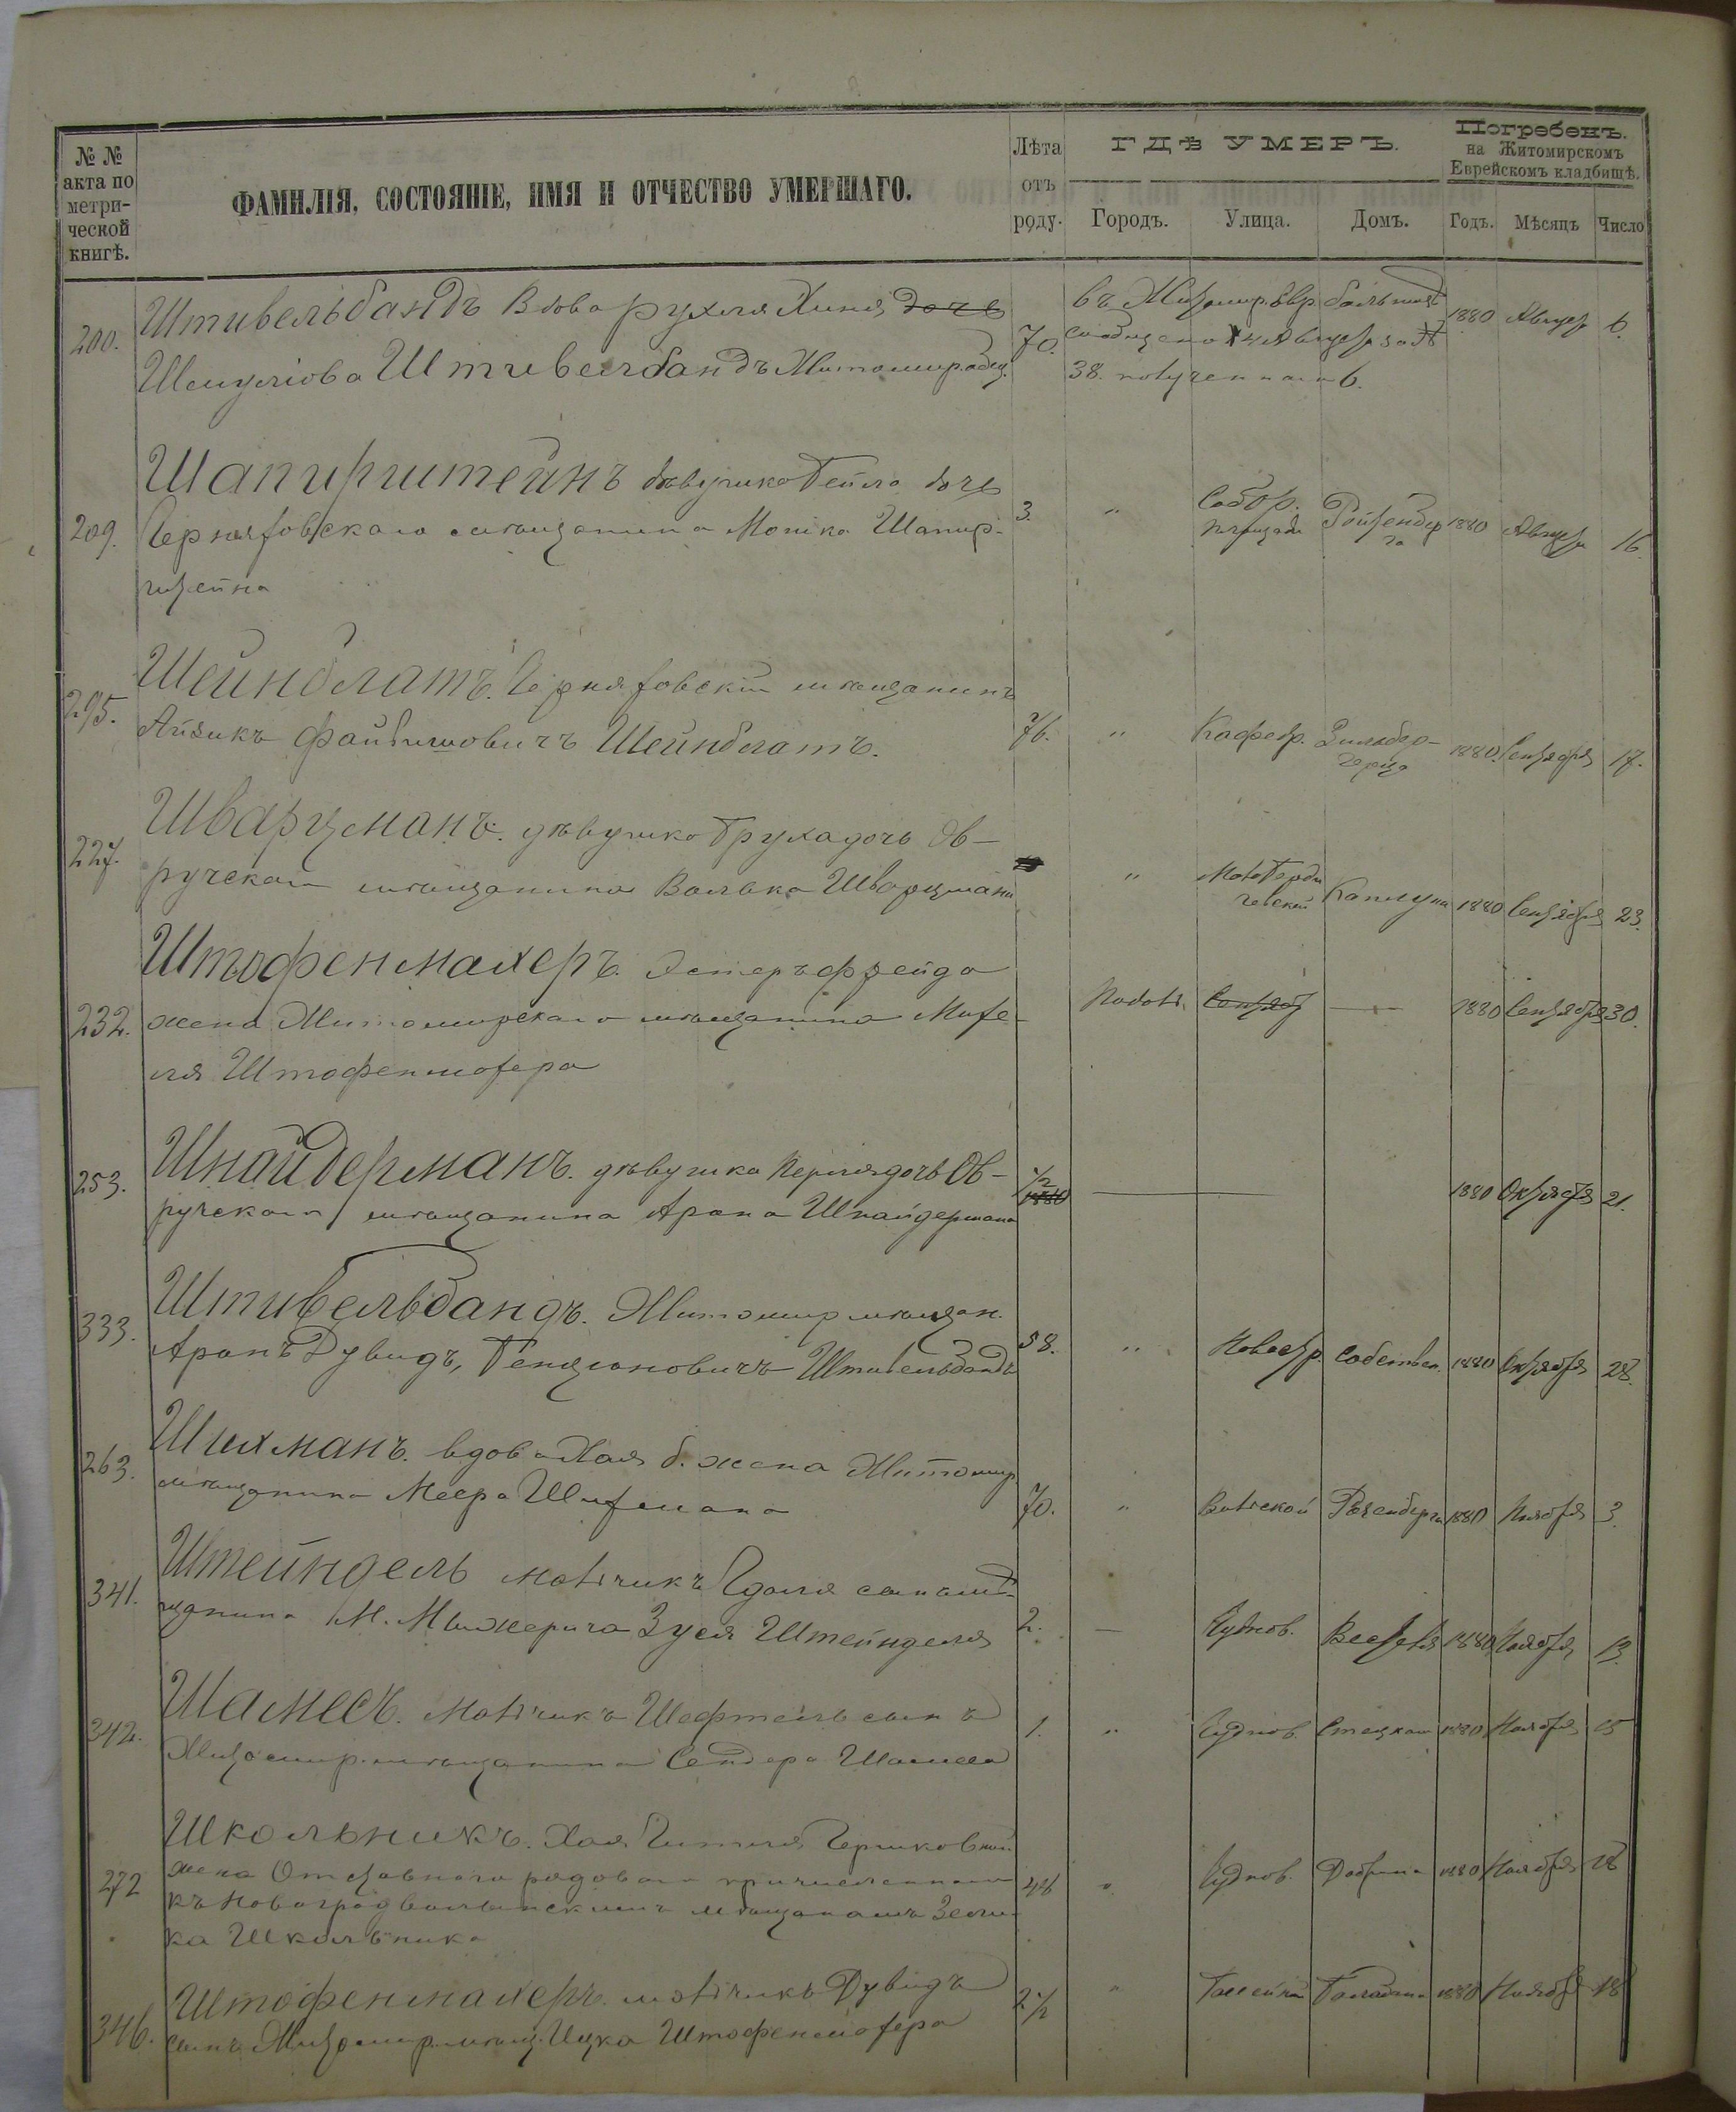 № №
акта по
метри-
ческой
книгѣ.
ФАМИЛІЯ, СОСТОЯНІЕ, ИМЯ И ОТЧЕСТВО УМЕРШАГО.
Лѣта
отъ
роду.
ГДѢ УМЕРЪ.
Городъ. Улица. Домъ.
Погребенъ.
на Житомирскомъ
Еврейскомъ кладбищѣ.
Годъ. Мѣсяцъ Число
200. Штивельбандъ Вдова Рухля Хиня дочь
Штивельбандъ
70. въ Житомир. Евр. больниц
38. 6.
1880 Август 6.
209. Шапирштейнъ дѣвушка Бейла дочь
Черняховскаго мѣщанина Мошка Шапир-
штейна
3. " Собор.
площади 1880 Август 16.
295. Шейнблатъ. Черняховскій мѣщанинъ
Айзикъ Файбишовичъ Шейнблатъ.
76. " Кафедр. Зильбер-
герца 1880. Сентября 17.
227. Шварцманъ. дѣвушка Бруха дочь Ов-
ручскаго мѣщанина Волька Шварцмана
" Мало Берди
чевской Каплуна 1880 Сентября 23.
232. Штофенмахеръ. Эстеръ Фрейда
жена Житомирскаго мѣщанина Михе-
ля Штофенмахера
Подол. — 1880 Сентября 30.
253. Шнайдерманъ. дѣвушка Перля дочь Ов-
ручскаго мѣщанина Арона Шнайдермана
1/2 1880 Октября 21.
333. Штивельбандъ. Житомир мѣщан.
Аронъ Дувидъ, Бенціоновичъ Штивельбандъ
58. " собствен. 1880 Октября 28.
263. Шихманъ. вдова Хая б. жена Житомир
мѣщанина Меера Шихмана
70. " Вильской Розенберга 1880 Ноября 3.
341. Штейндель мальчикъ сынъ мѣ-
щанина М. Зуся Штейнделя
2. — Чуднов. 1880 Ноября 13.
342. Шамесъ. мальчикъ Шефтель сынъ
Житомир. мѣщанина Сендера Шамеса
1. " Чуднов. 1880 Ноября 15
272 Школьникъ. Хая Гитля Гершковна
жена Отставнаго рядоваго причисленнаго
къ Новоградволынскимъ мѣщанамъ Зели-
ка Школьника
" Чуднов. 1880 Ноября 18
346. Штофенмахеръ. мальчикъ Дувидъ
сынъ Житомир. мѣщ. Ицка Штофенмахера
2 1/2 " 1880 Ноября 18